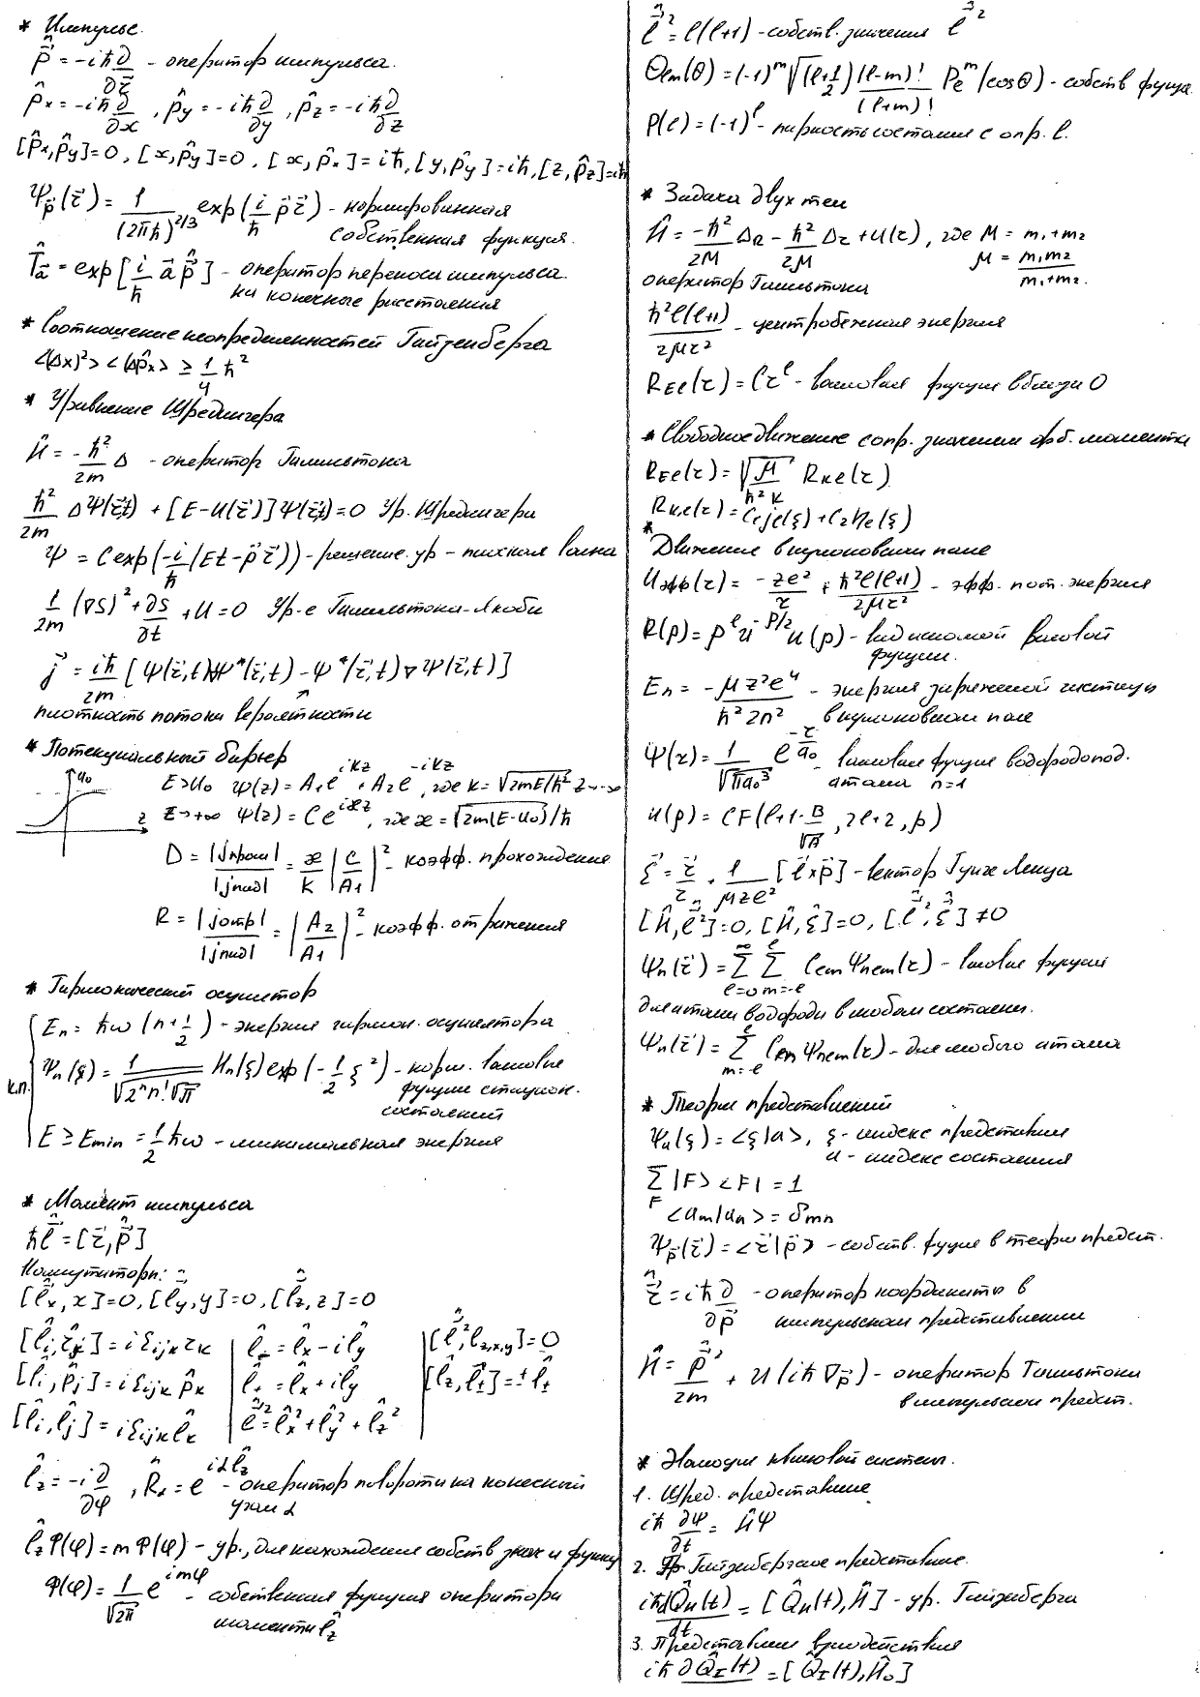 * Импульс.
p̂⃗ = -iħ ∂/∂r⃗ - оператор импульса.
p̂x = -iħ ∂/∂x, p̂y = -iħ ∂/∂y, p̂z = -iħ ∂/∂z
[p̂x, p̂y]=0, [x, p̂y]=0, [x, p̂x]=iħ, [y, p̂y]=iħ, [z, p̂z]=iħ
Ψp⃗(r⃗) = 1/(2πħ)^2/3 exp(i/ħ p⃗r⃗) - нормированная
собственная функция.
T̂a⃗ = exp[i/ħ a⃗ p̂⃗] - оператор переноса импульса.
на конечные расстояния
* Соотношение неопределенностей Гайзенберга
<(Δx)²> <(Δp̂x> ≥ 1/4 ħ²
* Уравнение Шредингера
Ĥ = -ħ²/2m Δ - оператор Гамильтона
ħ²/2m ΔΨ(r⃗,t) + [E-U(r⃗)]Ψ(r⃗,t)=0 Ур. Шредингера
Ψ = C exp(-i/ħ (Et - p⃗r⃗)) - решение ур - плоская волна
1/2m (∇S)² + ∂S/∂t + U = 0 Ур-е Гамильтона-Якоби
j⃗ = iħ/2m [Ψ(r⃗,t)∇Ψ*(r⃗,t) - Ψ*(r⃗,t)∇Ψ(r⃗,t)]
плотность потока вероятности
* Потенциальный барьер
U₀
z
E>U₀ ψ(z) = A₁e^ikz + A₂e^-ikz, где k = √2mE/ħ² z→-∞
z→+∞ ψ(z) = Ce^iæz, где æ = √2m(E-U₀)/ħ
D = |jпрош|/|jпад| = æ/k |C/A₁|² - коэфф. прохождения
R = |jотр|/|jпад| = |A₂/A₁|² - коэфф. отражения
* Гармонический осцилятор
к.п.
En = ħω(n+1/2) - энергия гармон. осцилятора
Ψn(ξ) = 1/√2ⁿn!√π Hn(ξ)exp(-1/2 ξ²) - норм. волновые
функции стацион.
состояний
E ≥ Emin = 1/2 ħω - минимальная энергия
* Момент импульса
ħl̂⃗ = [r⃗, p̂⃗]
Коммутаторы:
[l̂x, x]=0, [l̂y, y]=0, [l̂z, z]=0
[l̂i, rj] = iεijk rk | l̂₋ = l̂x - il̂y | [l̂⃗², lz,x,y]=0
[l̂i, p̂j] = iεijk p̂k | l̂₊ = l̂x + il̂y | [l̂z, l̂±] = ±l̂±
[l̂i, l̂j] = iεijk l̂k | l̂⃗² = l̂x² + l̂y² + l̂z²
l̂z = -i ∂/∂φ, R̂α = e^iαl̂z - оператор поворота на конечный
угол α
l̂zΦ(φ) = mΦ(φ) - ур., для нахождения собств знач и функц
Φ(φ) = 1/√2π e^imφ - собственная функция оператора
момента l̂z
l̂⃗² = l(l+1) - собств. значения l̂⃗²
Θlm(θ) = (-1)^m √(l+1/2) (l-m)!/(l+m)! Pl^m (cosθ) - собств функц.
P(l) = (-1)^l - парность состояния с опр. l.
* Задача двух тел
Ĥ = -ħ²/2M ΔR - ħ²/2μ Δr + U(r), где M = m₁+m₂
μ = m₁m₂/m₁+m₂.
оператор Гамильтона
ħ²l(l+1)/2μr² - центробежная энергия
REl(r) = Cr^l - волновая функция вблизи 0
* Свободное движение с опр. значением орб. момента
REl(r) = √μ/ħ²k Rkl(r)
Rkl(r) = C₁jl(ξ) + C₂nl(ξ)
*
Движение в кулоновском поле
Uэфф(r) = -ze²/r + ħ²l(l+1)/2μr² - эфф. пот. энергия
R(ρ) = ρ^l u^-ρ/2 u(ρ) - вид искомой волновой
функции.
En = -μz²e⁴/ħ²2n² - энергия заряженной частицы
в кулоновском поле
Ψ(r) = 1/√πa₀³ e^-r/a₀ - волновая функция водородопод.
атома n=1
u(ρ) = CF(l+1-B/√A, 2l+2, ρ)
ξ⃗ = r⃗/r + 1/μze² [l⃗×p⃗] - вектор Рунге Ленца
[Ĥ, l̂⃗²]=0, [Ĥ, ξ̂]=0, [l̂⃗², ξ̂⃗] ≠0
Ψn(r⃗) = ∞Σl=0 lΣm=-l Clm Ψnlm(r) - волновые функции
для атома водорода в любом состоянии.
Ψn(r⃗) = lΣm=-l Clm Ψnlm(r) - для любого атома
* Теория представлений
Ψa(ξ) = <ξ|a>, ξ - индекс представления
a - индекс состояния
ΣF |F> <F| = 1
<am|an> = δmn
Ψp⃗(r⃗) = <r⃗|p⃗> - собств. функция в теории предст.
r̂⃗ = iħ ∂/∂p⃗ - оператор координаты в
импульсном представлении
Ĥ = p⃗²/2m + U(iħ∇p⃗) - оператор Гамильтона
в импульсном предст.
* Эволюция квантовой системы.
1. Шред. представление
iħ ∂Ψ/∂t = ĤΨ
2. Гайзенбергское представление.
iħ dQ̂H(t)/dt = [Q̂H(t), Ĥ] - ур. Гайзенберга
3. Представление взаимодействия
iħ ∂Q̂I(t) = [Q̂I(t), Ĥ₀]